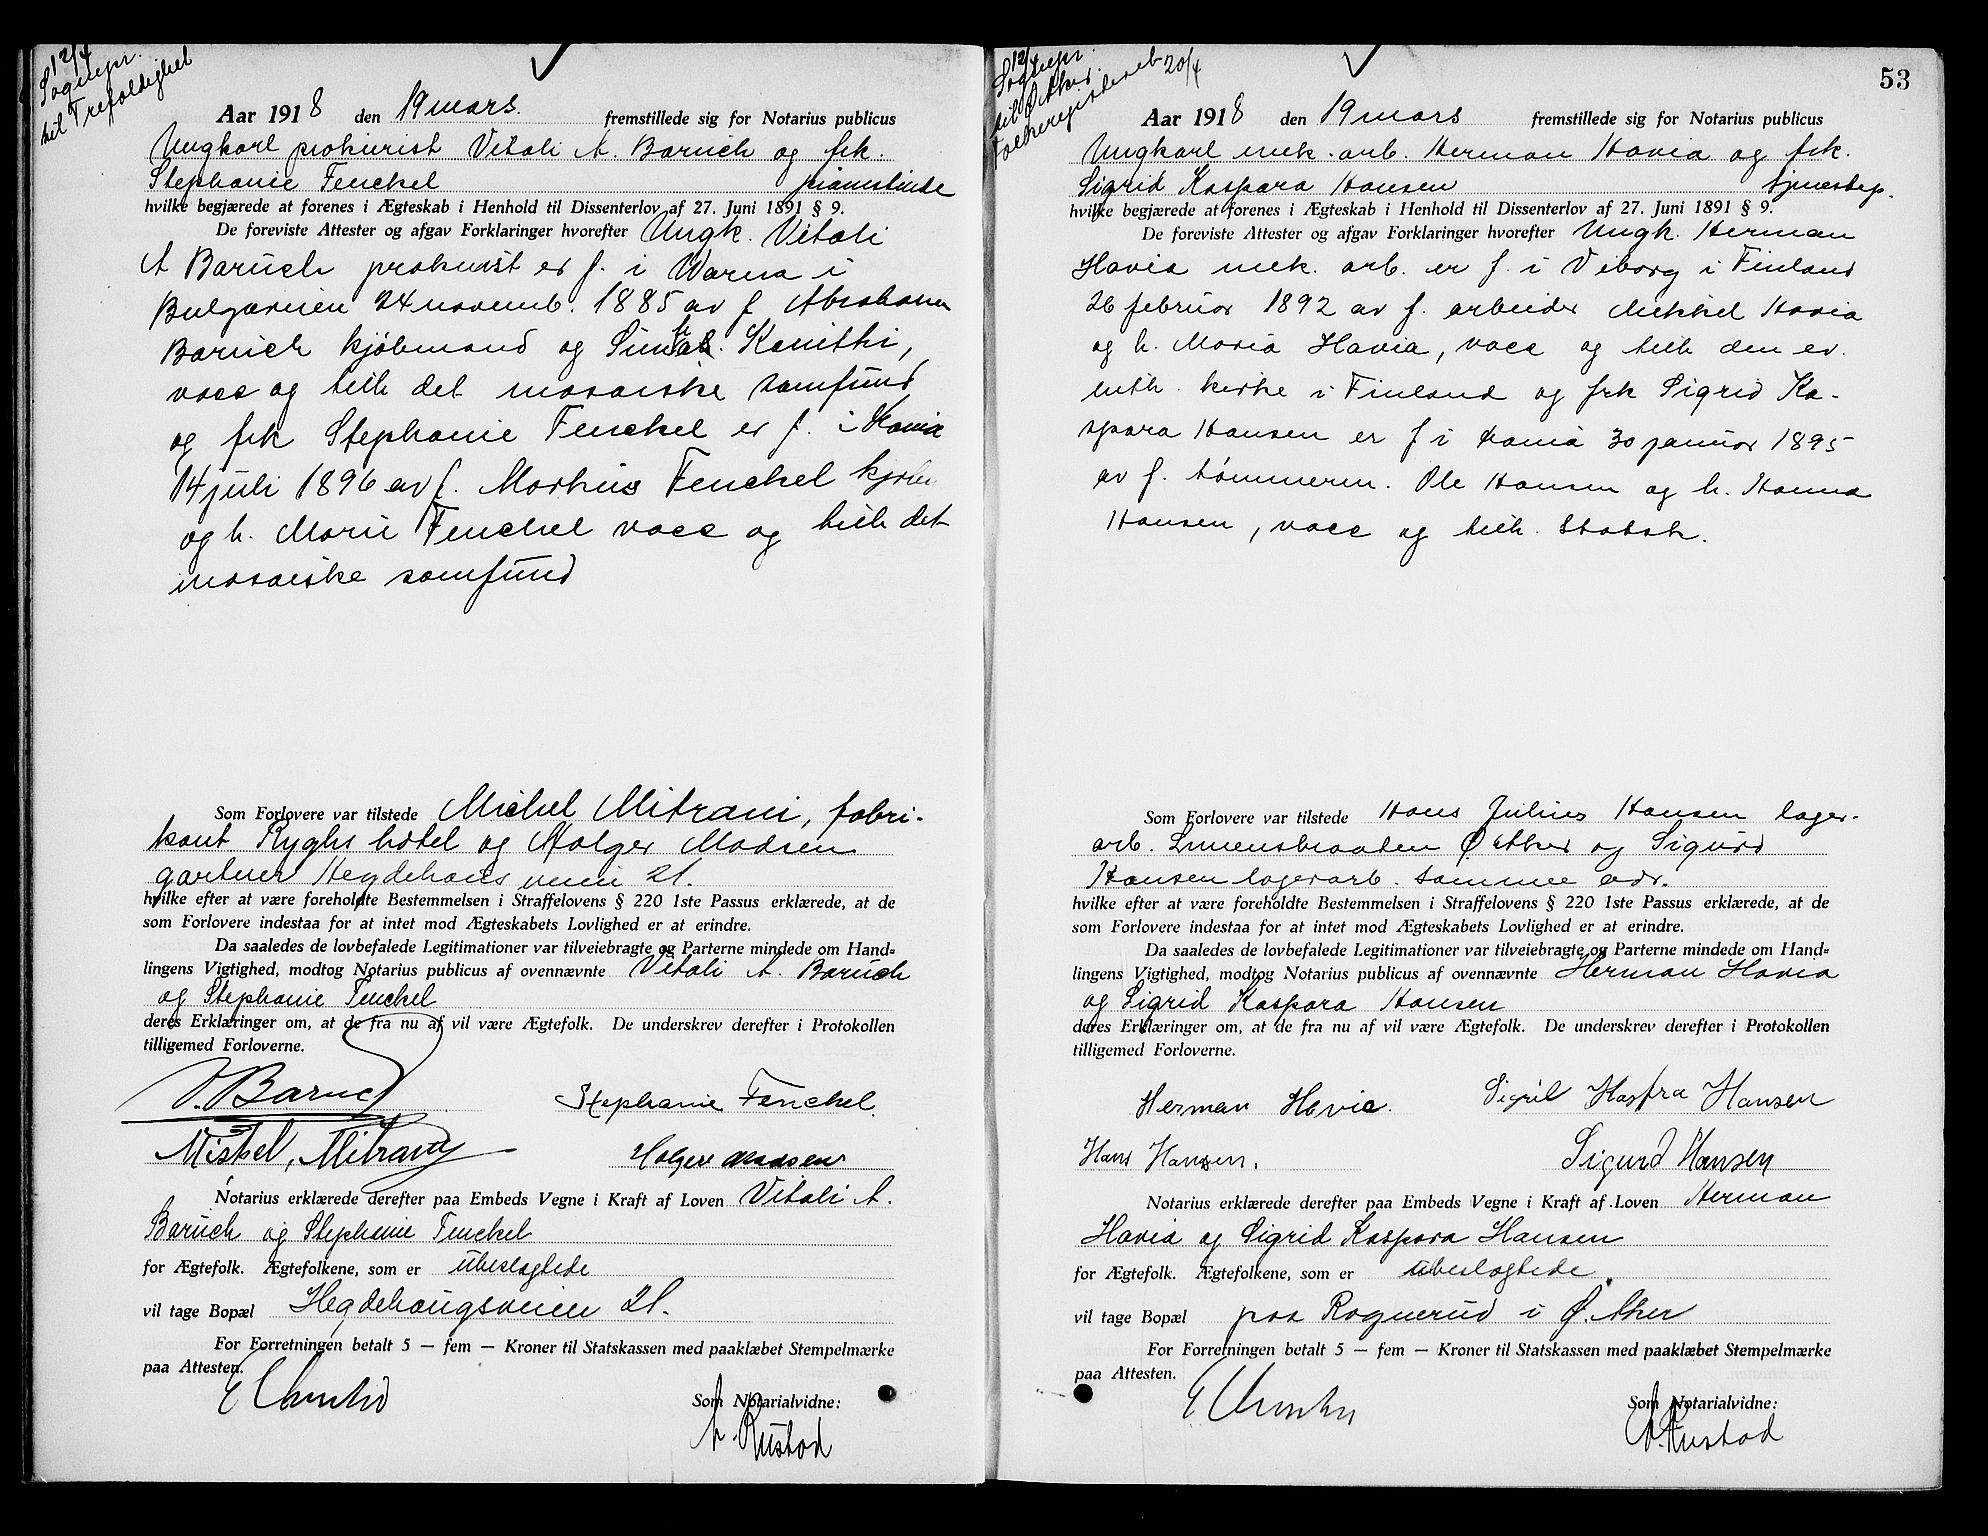 12/4
Sognepr.
til Trefoldighed
Aar 1918 den 19 mars. fremstillede sig for Notarius publicus
Ungkarl prokurist Vitali A. Baruch og frk.
Stephanie Fenchel pianistinde
hvilke begjærede at forenes i Ægteskab i Henhold til Dissenterlov af 27. Juni 1891 § 9.
De foreviste Attester og afgav Forklaringer hvorefter Ungk. Vitali
A Baruch prokurist er f. i Warna i
Bulgarien 24 novemb. 1885 av f. Abraham
Baruch kjøbmand og Kamithi,
vacc og tilh det mosaiske samfund
og frk Stephanie Fenchel er f. i Kania
14 juli 1896 av f. Markus Fenchel kjøbm
og h. Marie Fenchel vacc og tilh det
mosaiske samfund
Som Forlovere var tilstede Michel Mitrani, fabri-
kant Ryghs hotel og Holger Madsen
gartner Hegdehaugsveien 21.
hvilke efter at være foreholdte Bestemmelsen i Straffelovens § 220 1ste Passus erklærede, at de
som Forlovere indestaa for at intet mod Ægteskabets Lovlighed er at erindre.
Da saaledes de lovbefalede Legitimationer var tilveiebragte og Parterne mindede om Hand-
lingens Vigtighed, modtog Notarius publicus af ovennævnte Vitali A. Baruch
og Stephanie Fenchel
deres Erklæringer om, at de fra nu af vil være Ægtefolk. De underskrev derefter i Protokollen
tilligemed Forloverne.
V. Baruch Stephanie Fenchel.
Mishel, Mitrany Holger Madsen
Notarius erklærede derefter paa Embeds Vegne i Kraft af Loven Vitali A.
Baruch og Stephanie Fenchel
for Ægtefolk. Ægtefolkene, som er ubeslagtede
vil tage Bopæl Hegdehaugsveien 21.
For Forretningen betalt 5 — fem — Kroner til Statskassen med paaklæbet Stempelmærke
paa Attesten.
Som Notarialvidne:
A. Rustad
53
12/4
Sognepr.
til Ø. Aker.
Folkeregisteret 20/4
Aar 1918 den 19 mars fremstillede sig for Notarius publicus
Ungkarl mek. arb. Herman Havia og frk.
Sigrid Kaspara Hansen tjenestep.
hvilke begjærede at forenes i Ægteskab i Henhold til Dissenterlov af 27. Juni 1891 § 9.
De foreviste Attester og afgav Forklaringer hvorefter Ungk. Herman
Havia mek. arb. er f. i Viborg i Finland
26 februar 1892 av f. arbeider Mikkel Havia
og h. Maria Havia, vacc og tilh den ev.
luth. kirke i Finland og frk Sigrid Ka-
spara Hansen er f i Kania 30 januar 1895
av f. tømmerm. Ole Hansen og h. Hanna
Hansen, vacc og tilh. Statsk.
Som Forlovere var tilstede Hans Julius Hansen lager-
arb. Ø Aker og Sigurd
Hansen lagerarb. samme adr.
hvilke efter at være foreholdte Bestemmelsen i Straffelovens § 220 1ste Passus erklærede, at de
som Forlovere indestaa for at intet mod Ægteskabets Lovlighed er at erindre.
Da saaledes de lovbefalede Legitimationer var tilveiebragte og Parterne mindede om Hand-
lingens Vigtighed, modtog Notarius publicus af ovennævnte Herman Havia
og Sigrid Kaspara Hansen
deres Erklæringer om, at de fra nu af vil være Ægtefolk. De underskrev derefter i Protokollen
tilligemed Forloverne.
Herman Havia. Sigrid Kaspra Hansen
Hans Hansen. Sigurd Hansen
Notarius erklærede derefter paa Embeds Vegne i Kraft af Loven Herman
Havia og Sigrid Kaspara Hansen
for Ægtefolk. Ægtefolkene, som er ubeslagtede.
vil tage Bopæl paa Rognerud i Ø. Aker
For Forretningen betalt 5 — fem — Kroner til Statskassen med paaklæbet Stempelmærke
paa Attesten.
Som Notarialvidne:
A. Rustad